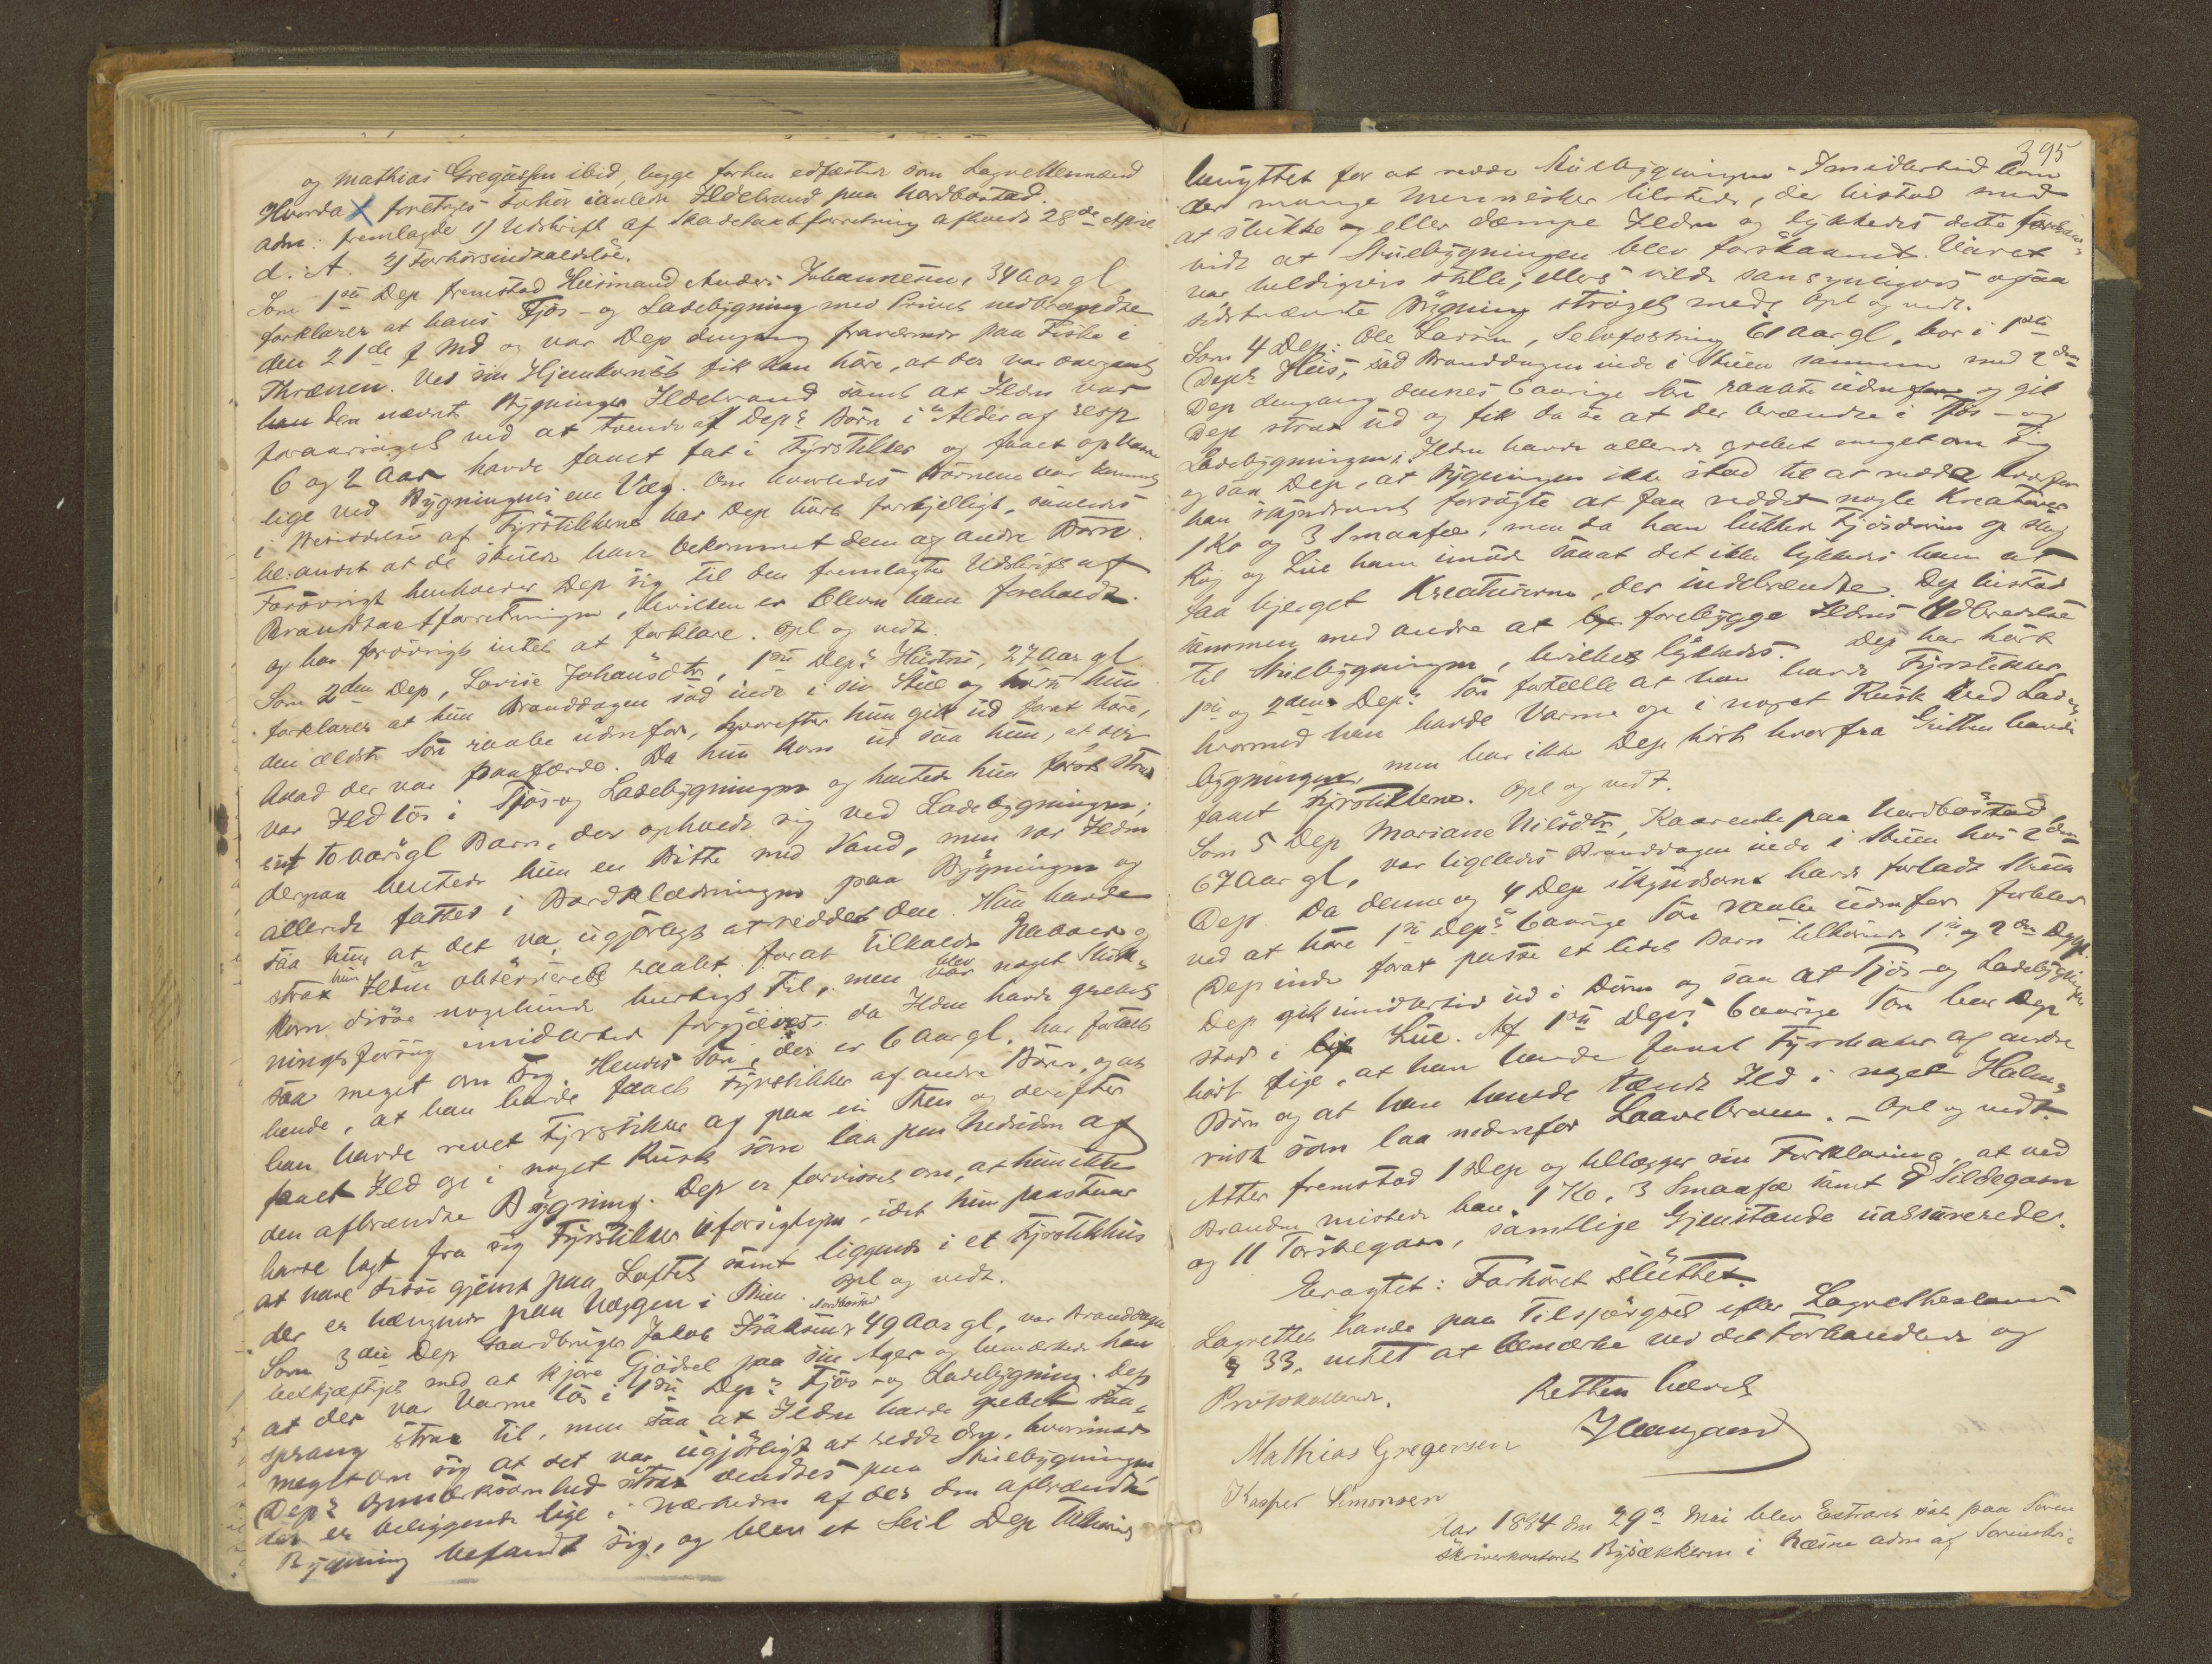 og Mathias Gregussen ibid, begge forhen edfæstede som Lagrettemænd
Hvorda foretoges Forhør ianledn Ildebrand paa Nordbostad.
Adm: fremlagde 1) Udskrift af Skadetaxtforretning afholdt 28de April
d. A. 2) Forhørsindkaldelse.
Som 1ste Dep fremstod Huusmand Anders Johannesen, 34 Aar gl
forklarer at hans Fjøs- og Ladebygning med Privet nedbrændte
den 21de f Md og var Dep dengang fraværende paa Fiske i
Thrænen. Ved sin Hjemkomst fik han høre, at der var overgaaet
han den nævnte Bygninger Ildebrand samt at Ilden var
foraarsaget ved at tvende af Dep's Børn i Alder af resp
6 og 2 Aar havde faaet fat i Fyrstikker og faaet op Varme
lige ved Bygningens ene Væg. Om hvorledes Børnene var kommet
i Besiddelse af Fyrstikkene har Dep hørt forskjelligt, saaledes
bl: andet at de skulde have bekommet dem af andre Børn.
Forøvrigt henholder Dep sig til den fremlagte Udskrift af
Brandtaxtforretningen, hvilken er bleven ham foreholdt.
og har forøvrigt intet at forklare. Opl og vedt.
Som 2den Dep, Lovise Johansdtr, 1ste Dep's Hustru, 27 Aar gl
forklarer at hun Branddagen sad inde i sin Stue og hørte hun
den ældste Søn raabe udenfor, hvorefter hun gik ud forat høre,
hvad der var paafærde. Da hun kom ud saa hun, at der
var Ild løs i Fjøs- og Ladebygningen og hentede hun først strax
sit to aarsgl Barn, der opholdt sig ved Ladebygningen;
derpaa hentede hun en Bøtte med Vand, men var Ilden
allerede fattet i Bordklædningen paa Bygningen og
saa hun at det var ugjørligt at reddet den. Hun havde
strax hun Ilden observeret raabt forat tilkalde Naboer og
kom disse nogenlunde hurtigt til, men blev noget Sluk-
ningsforsøg imidlertid forgjæves, da Ilden havde grebet
saa meget om sig. Hendes Søn, der er 6 Aar gl, har fortalt
hende, at han havde faaet Fyrstikker af andre Børn, og at
han havde revet Fyrstikker af paa en Sten og derefter
faaet Ild op i noget Rusk som laa paa Nedsiden af
den afbrændte Bygning. Dep er forvisset om, at hun ikke
havde lagt fra sig Fyrstikker uforsigtigen, idet hun paastaar
at have disse gjemt paa Loftet samt liggende i et Fyrstikhus
der er hængende paa Væggen i Stuen. Opl og vedt.
Nordbostad
Som 3die Dep Gaardbruger Jakob Isaksen 49 Aar gl, var Branddagen
beskjæftiget med at kjøre Gjødsel paa sin Ager og bemærkede han
at der var Varme løs i 1ste Dep's Fjøs- og Ladebygning. Dep
sprang strax til, men saa at Ilden havde grebet saa
meget om sig at det var ugjørligt at redde den, hvorimod
Dep's Opmærksomhed strax vendtes paa Stuebygningen
der er beliggende lige i Nærheden af der den afbrændte
Bygning befandt sig, og blev et Seil Dep tilhørende
395
benyttet for at redde Stuebygningen. Imidlertid kom
der mange Mennesker tilstede, der bistod med
at slukke og eller dæmpe Ilden og lykkedes dette forsaa-
vidt at Stuebygningen blev forskaanet. Været
var heldigvis stille, ellers vilde sansynligvis ogsaa
sidstnævnte Bygning strøget med. Opl og vedt.
Som 4 Dep: Ole Larsen, Selvfostring 61 Aar gl, bor i 1ste
Dep's Hus, sad Branddagen inde i Stuen sammen med 2den
Dep dengang dennes 6 aarige Søn raabte udenfor og gik
Dep strax ud og fik da se at der brændte i Fjøs- og
Ladebygningen. Ilden havde allerede grebet meget om sig
og saa Dep, at Bygningen ikke stod til at redde hvorfor
han skyndsomt forsøgte at faa reddet nogle Kreaturer
1 Ko og 3 Smaafæ, men da han lukkede Fjøsdøren op slog
Røg og Lue ham imøde saaat det ikke lykkedes ham at
faa bjerget Kreaturerne, der indebrændte. Dep bistod
sammen med andre at forebygge Ildens Udbredelse
til Stuebygningen, hvilket lykkedes. Dep har hørt
1ste og 2dens Dep's Søn fortælle at han havde Fyrstikker
hvormed han havde Varme op i noget Rusk ved Lade-
bygningen, men har ikke Dep hørt hvorfra Gutten havde
faaet Fyrstikkene. Opl og vedt.
Som 5 Dep Mariane Nilsdtr, Kaarenke paa Nordbostad
67 Aar gl, var ligeledes Branddagen inde i Stuen hos 2den
Dep. Da denne og 4 Dep skyndsomt havde forladt Stuen
ved at høre 1ste Dep's 6 aarige Søn raabe udenfor forblev
Dep inde forat passe et lidet Barn tilhørende 1ste og 2den Dep.
Dep gik imidlertid ud i Døren og saa at Fjøs- og Ladebygningen
stod i Lue. Af 1ste Dep's 6 aarige Søn har Dep
hørt sige, at han havde faaet Fyrstikker af andre
Børn og at han havde tændt Ild i noget Halm-
rusk som laa nedenfor Laavebroen. – Opl og vedt.
Atter fremstod 1 Dep og tillægger sin Forklaring, at ved
Branden mistede han 1 Ko, 3 Smaafæ samt 9 Sildegarn
og 11 Torskegarn, samtlige Gjenstande uassurerede.
Eragtet: Forhøret sluttet.
Lagrettet havde paa Tilspørgsel efter Lagretteslovens
§ 33, intet at bemærke ved det Forhandlede og
Protokollerede. Retten hævet
JHaugaard
Mathias Gregersen
Kasper Simonsen
Aar 1884 den 29de Mai blev Extraret sat paa Soren
skriverkontoret Bysækkern i Næsne adm af Sorenskri-